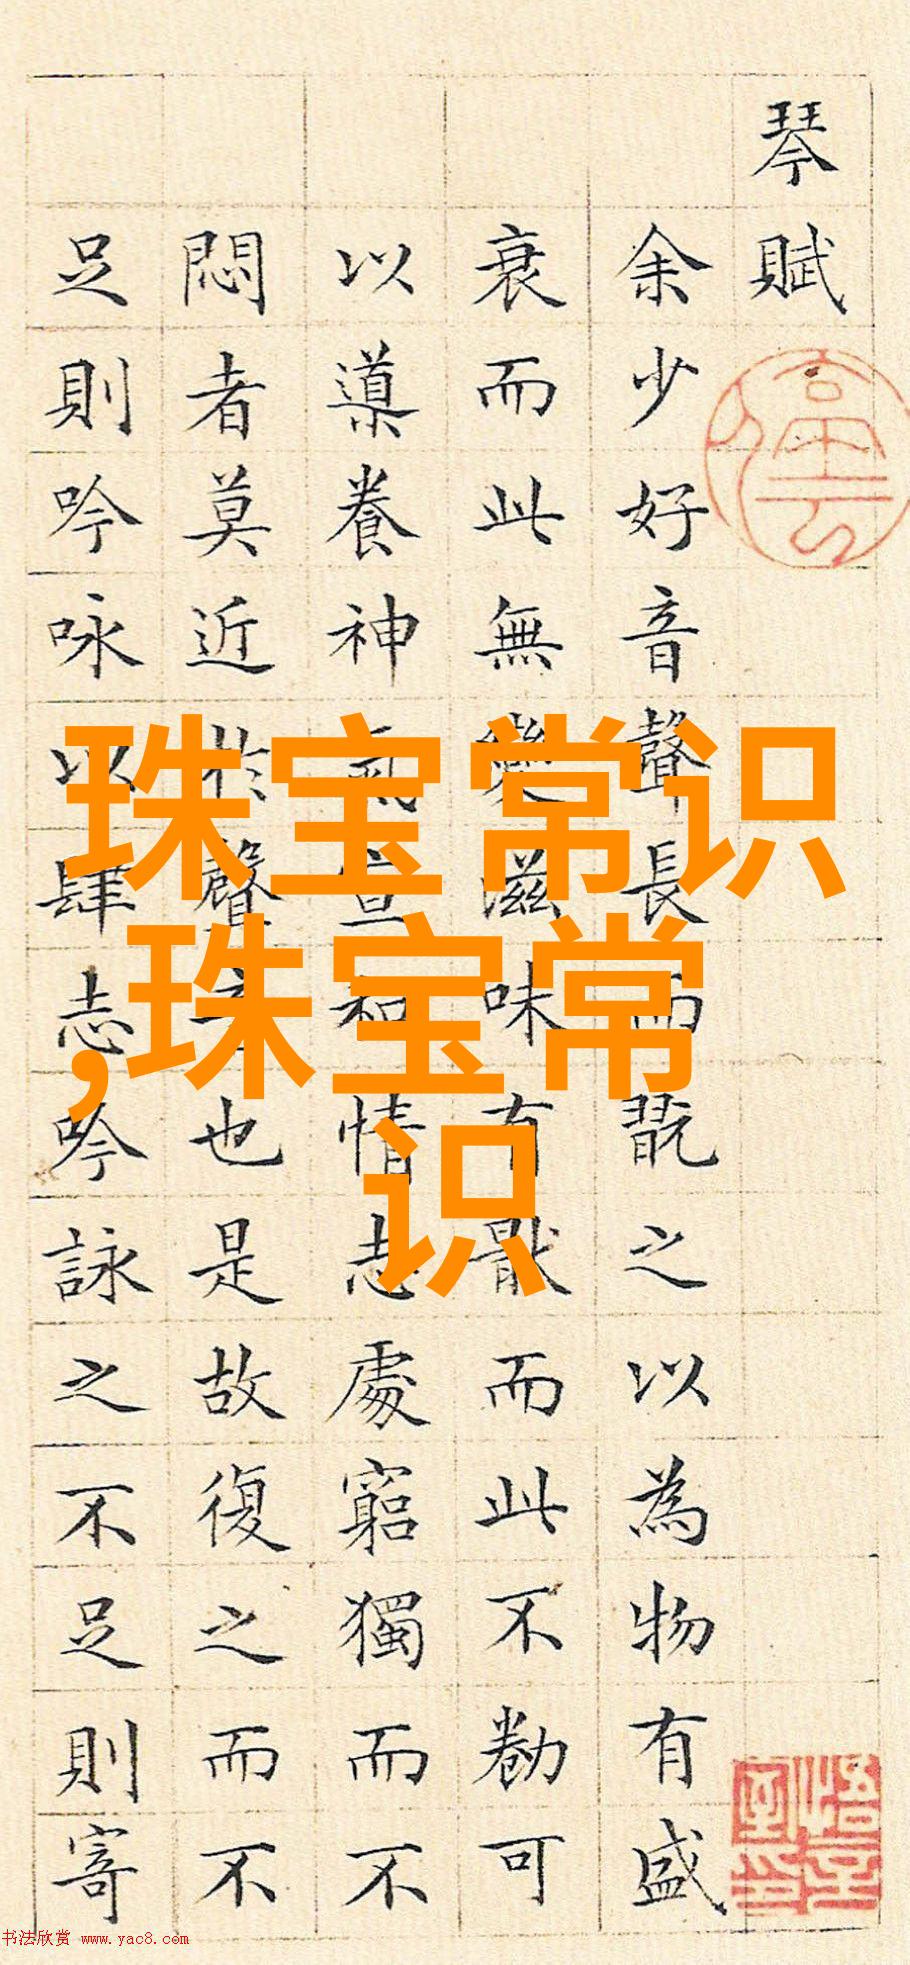 琴賦
余少好音聲長而翫之以為物有盛
衰而此無變滋味有猒而此不勌可
以導養神氣宣和情志處窮獨而不
悶者莫近於聲音也是故復之而不
足則吟咏以肆志吟詠之不足則寄
珠宝常识
,珠宝常
识
书法欣赏 www.yac8.com